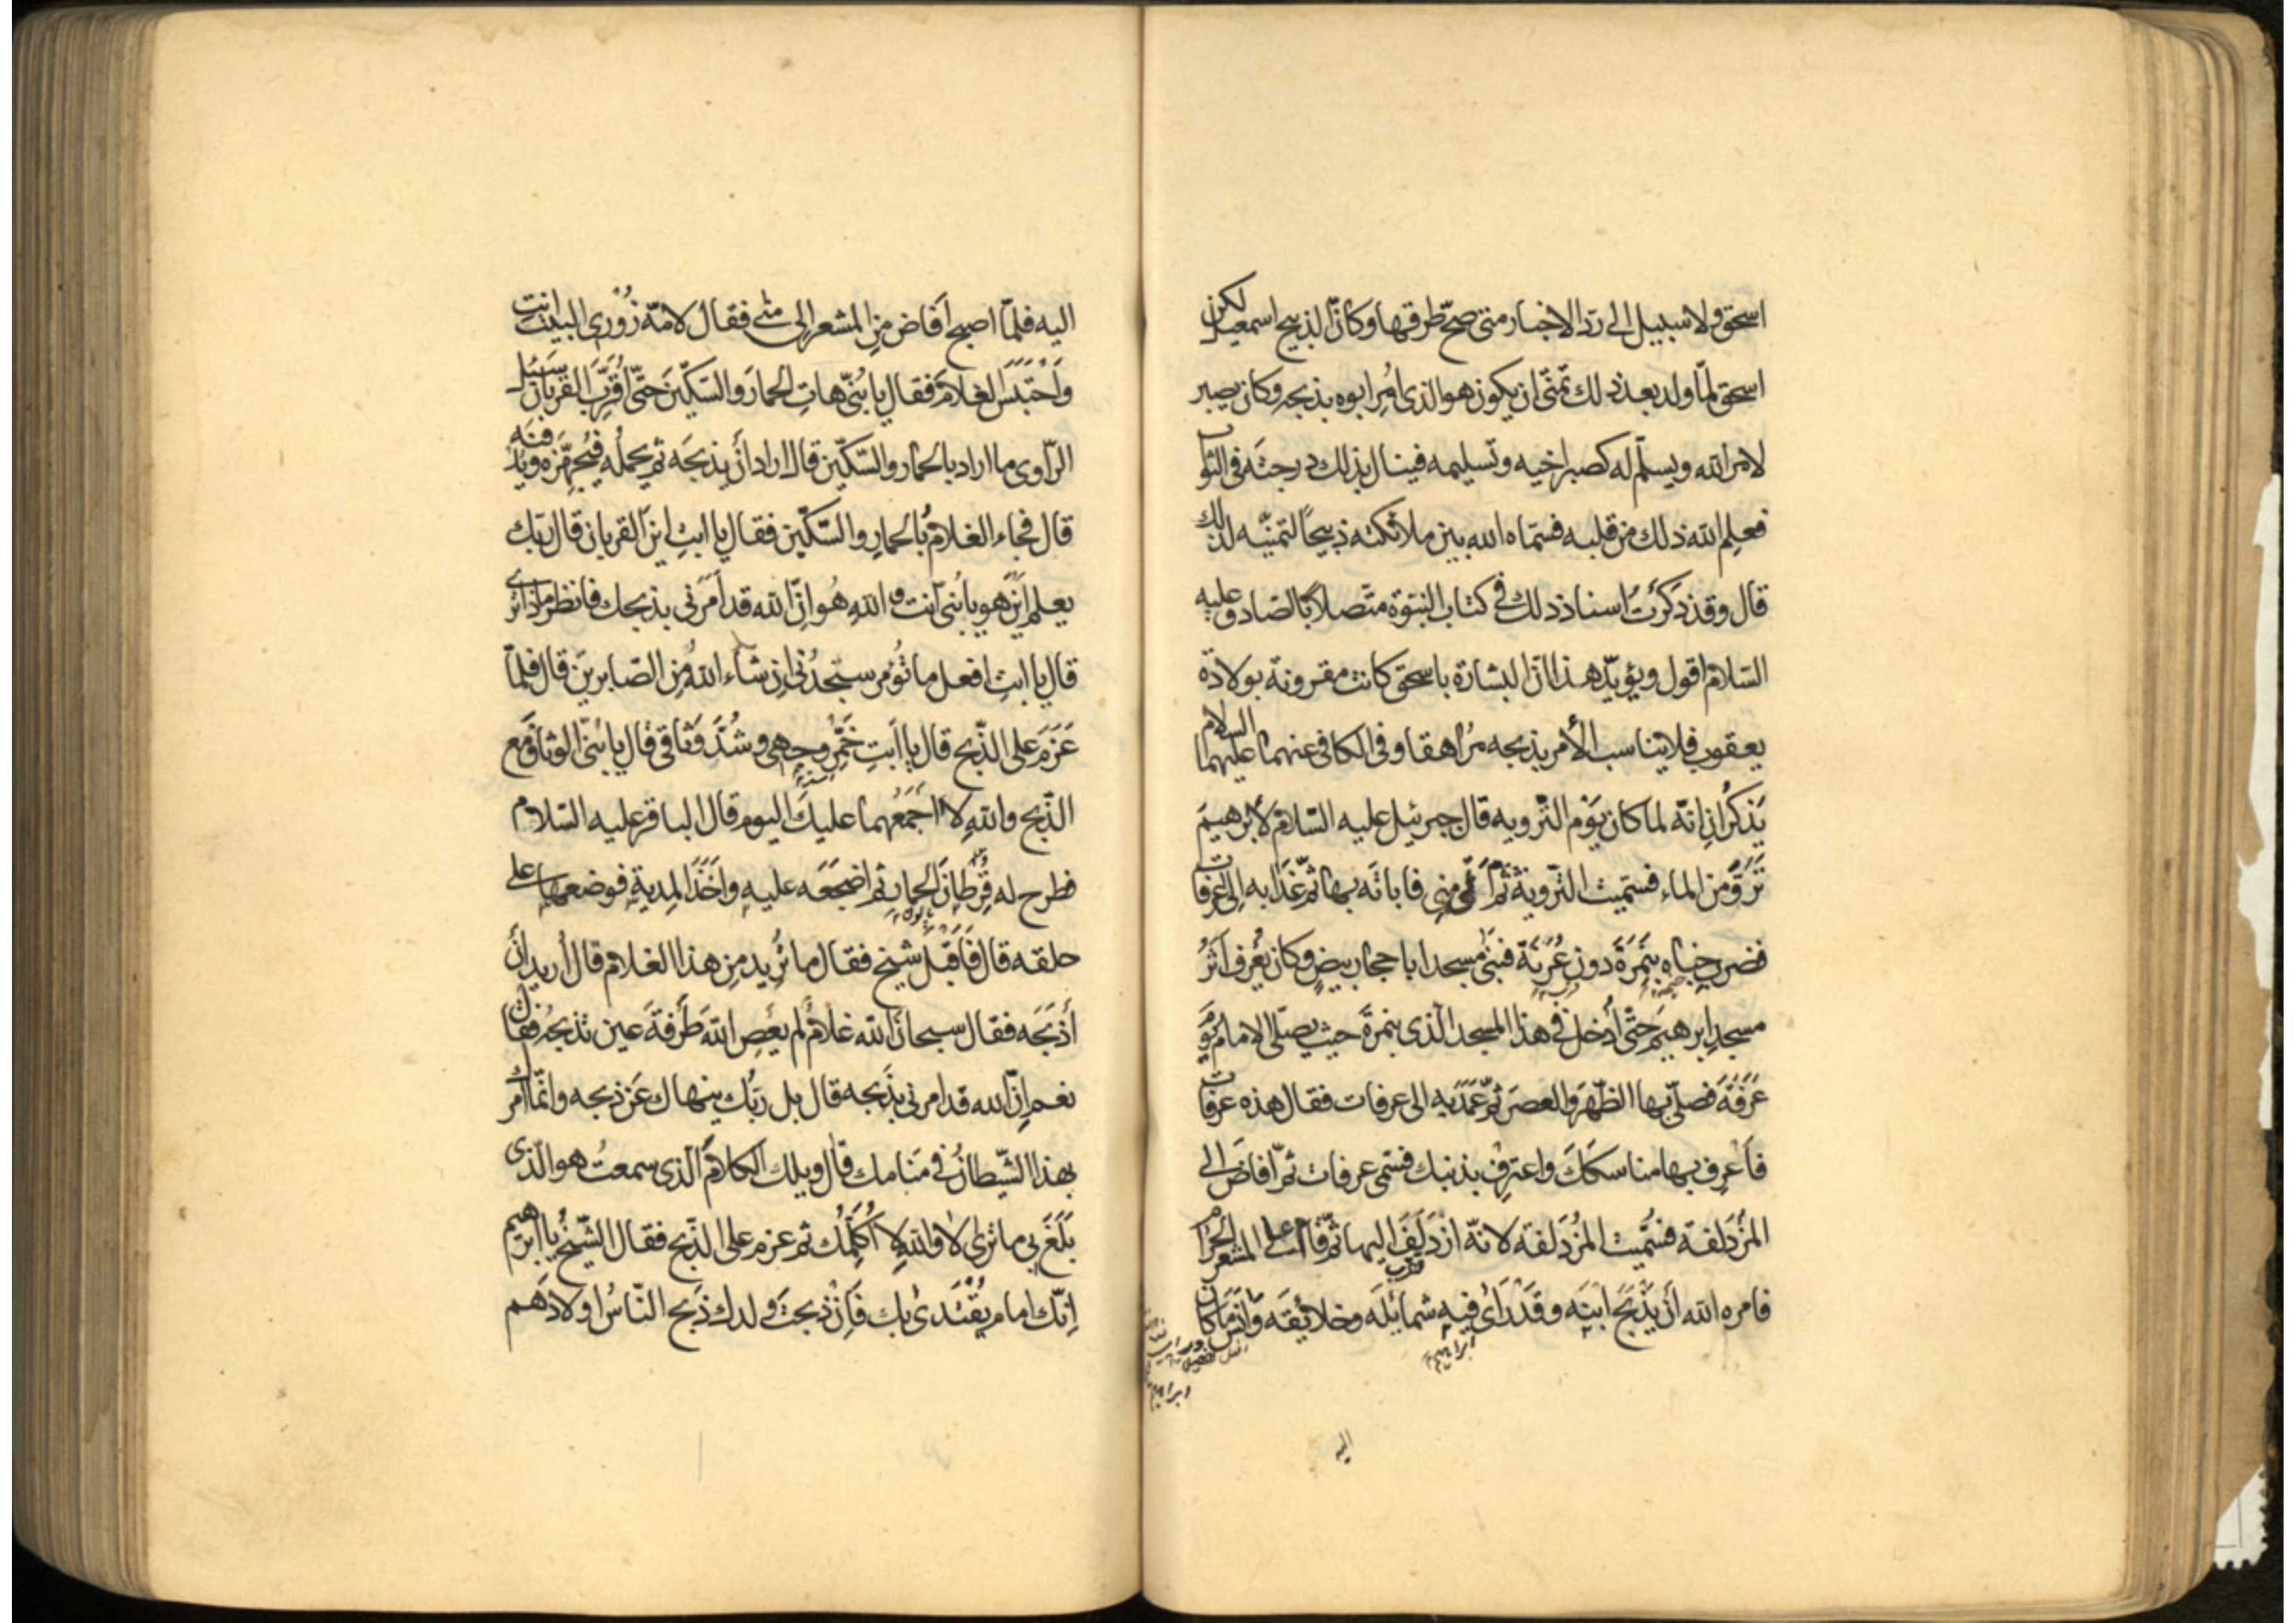 اسحق ولا سبيل الى ردّ الاخبار متى صحّ طرقها وكان الذبيح اسمعيل لكن
اسحق لمّا ولد بعد ذلك تمنّى ان يكون هو الذى اُمِر ابوه بذبحه وكان يصبر
لامر الله ويسلّم له كصبر اخيه وتسليمه فينال بذلك درجته فى الثواب
فعلم الله ذلك من قلبه فسمّاه الله بين ملائكته ذبيحاً لتمنّيه لذلك
قال وقد ذكرتُ اسناد ذلك فى كتاب النبوّة متصلاً بالصّادق عليه
السّلام اقول ويؤيّد هذا انّ البشارة باسحق كانت مقرونة بولادة
يعقوب فلا يناسب الأمر بذبحه مُراهقا وفى الكافى عنهما عليهما السلام
يَذكُران انّه لما كان يَوْم التّرويه قال جبرئيل عليه السّلام لأبرهيمَ
تَرَوَّ من الماء فسمّيت التّروية ثمّ أتى مِنى فاباته بها ثمّ غَدا به اِلى عرفات
فضرب خِباه بِنَمِرَةَ دون عُرَنَة فبنى مسجدا باحجار بيضٍ وكان يُعرف اَثَرُ
مسجد ابرهيمَ حتّى اُدخل فى هذا المسجد الّذى بنمرةَ حيث يصلّى الامام يَوْمَ
عَرَفَةَ فصلّى بها الظّهر والعصرَ ثمّ عَمَدَ به الى عرفات فقال هذه عرفات
فاَعْرِف بها مناسكَكَ واعترِفْ بذنبك فسمّى عرفات ثمّ افاضَ الى
المُزْدَلفة فسُمّيت المُزْدَلفة لانّه ازْدَلَفَ اليها ثمّ قام على المشعر الحرام
فامره الله اَنْ يَذْبَحَ ابنَه وقدْ رَاى فيه شمائله وخلائقَه وَاَنِسَ ما كان
ابراهيم
اليه
اليه فلمّا اصبح اَفاض مِن المشعر الى مِنى فقال لامّه زُورى البيت انتِ
وَاحْتَبَسَ الغلامَ فقال يا بُنىّ هاتِ الحمارَ والسّكّينَ حتّى اُقَرِّبَ القُربان سئل
الرّاوى ما اراد بالحمار والسّكّين قال اراد اَنْ يذبحَه ثمّ يحمله فيُجهّزه ويدفنه
قال فجاء الغلامُ بالحمارِ والسّكّين فقال يا ابتِ اين القربان قال ربّك
يعلم اين هو يا بُنىّ انت والله هُو اِنّ الله قد اَمَرَنى بذبحك فانظر ماذا ترى
قال يا ابتِ افعل ما تُؤمر ستجدُنى اِن شاء اللهُ مِن الصّابرين قال فلمّا
عَزَمَ على الذّبح قال يا اَبَتِ خَمِّرْ وجهى وشُدَّ وَثاقى قال يا بُنىّ الوثاق مع
الذّبح والله لا اَجمَعُهما عليكَ اليوم قال الباقر عليه السّلام
فطرح له قُرْطان الحمار ثمّ اضجَعَه عليه واَخَذَ المِدية فوضعها على
حلقه قال فَاَقْبَلَ شيخ فقال ما تُريد مِن هذا الغلام قال اُريد اَنْ
أذبَحَه فقال سبحان الله غلامٌ لم يَعصِ الله طَرفةَ عين تذبحُه فقال
نعم اِنّ الله قد امرنى بذَبحه قال بل ربُّك ينهاك عَن ذبحه وانّما امرك
بهذا الشّيطانُ فى مَنامك قال ويلك الكلامُ الّذى سمعتُ هو الّذى
بَلَغَ بى ما ترى لا والله لا اُكَلّمُك ثم عزم على الذّبح فقال الشّيخُ يا ابرهيم
اِنّك امام يُقْتَدى بك فَاِن ذبحتَ ولدك ذبح النّاسُ اولادَهم